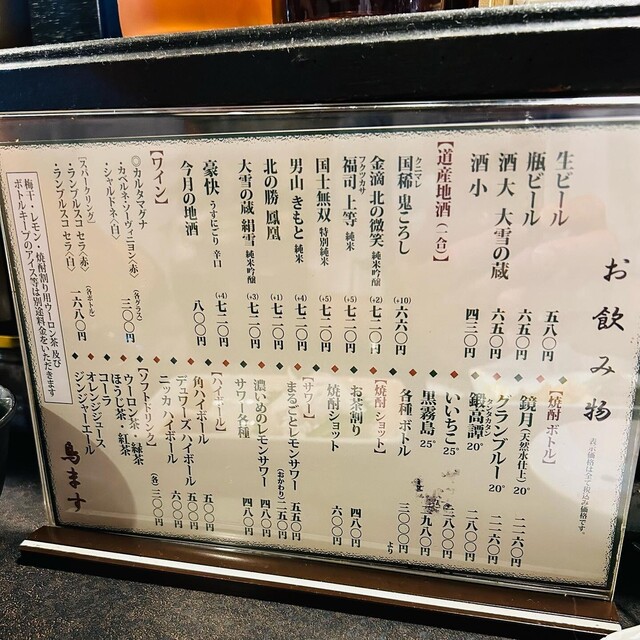 お飲み物
表示価格は全て税込み価格です。
生ビール 五八〇円
瓶ビール 六五〇円
酒 大 大雪の蔵 六五〇円
酒 小 四三〇円
【道産地酒（一合）】
国稀 鬼ころし (+10) 六六〇円
クニマレ
金滴 北の微笑 純米吟醸 (+2) 七二〇円
福司 上等 純米 (+5) 七二〇円
フクツカサ
国士無双 特別純米 (+5) 七二〇円
男山 きもと 純米 (+4) 七二〇円
北の勝 鳳凰 (+1) 七二〇円
大雪の蔵 絹雪 純米吟醸 (+3) 七二〇円
豪快 うすにごり 辛口 (+4) 七二〇円
今月の地酒 八〇〇円
【ワイン】
◎カルタマグナ (各グラス)
・カベルネ・ソーヴィニヨン〈赤〉 三〇〇円
・シャルドネ〈白〉
[スパークリング] (各ボトル)
・ランブルスコ セラ〈白〉 一六八〇円
・ランブルスコ セラ〈赤〉
梅干・レモン・焼酎割り用ウーロン茶 及び
ボトルキープのアイス等は別途料金をいただきます
【焼酎ボトル】
鏡月(天然水仕上) 20° 二一六〇円
グランブルー 20° 二二六〇円
鍛高譚 20° 二八〇〇円
タンタカタン
いいちこ 25° 二八〇〇円
黒霧島 25° 二九八〇円
各種ボトル 三〇〇〇円より
【焼酎ショット】
お茶割り 四八〇円
焼酎ショット 六〇〇円
【サワー】
まるごとレモンサワー 五五〇円
(おかわり) 二五〇円
濃いめのレモンサワー 四八〇円
サワー各種 四八〇円
【ハイボール】
角ハイボール 五〇〇円
デュワーズ ハイボール 五〇〇円
ニッカ ハイボール 六〇〇円
【ソフトドリンク】 (各) 三〇〇円
ウーロン茶・緑茶
ほうじ茶・紅茶
コーラ
オレンジジュース
ジンジャーエール
鳥ます